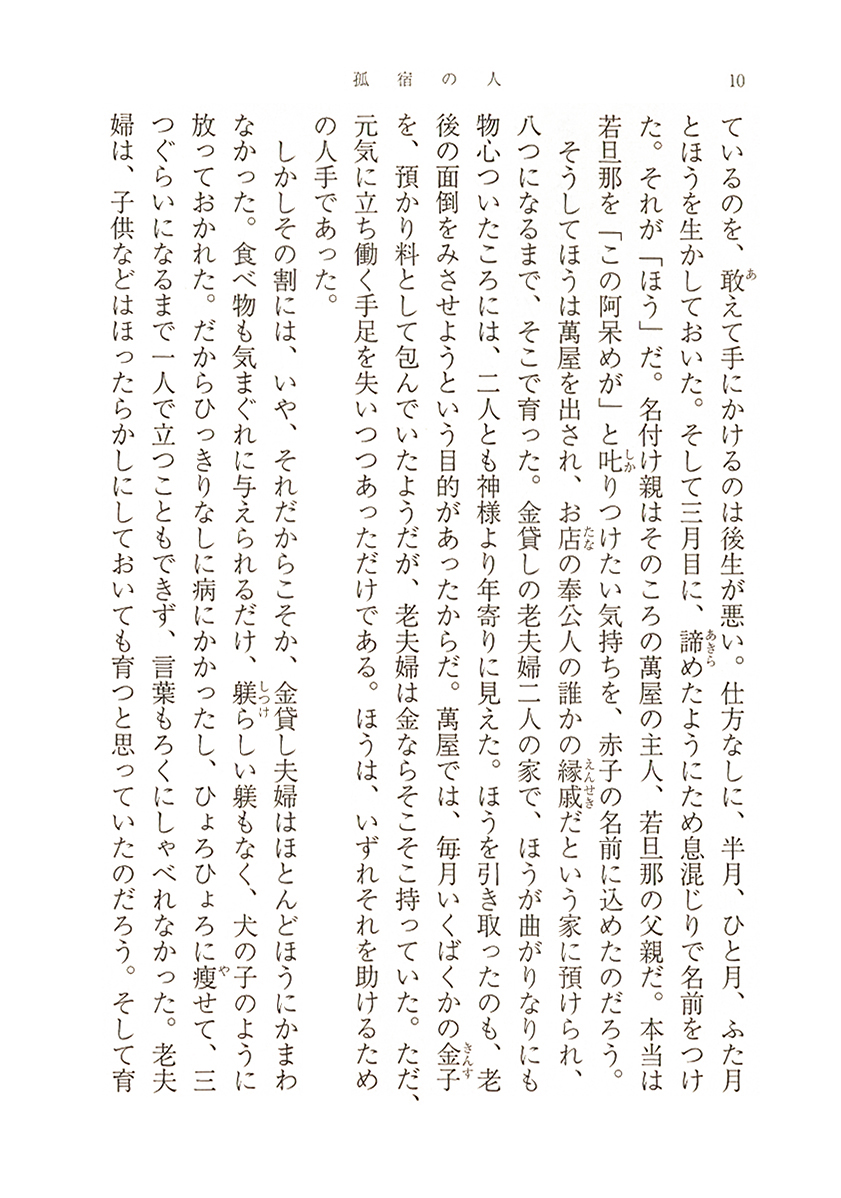 孤宿の人
10
ているのを、敢えて手にかけるのは後生が悪い。仕方なしに、半月、ひと月、ふた月
とほうを生かしておいた。そして三月目に、諦めたようにため息混じりで名前をつけ
た。それが「ほう」だ。名付け親はそのころの萬屋の主人、若旦那の父親だ。本当は
若旦那を「この阿呆めが」と叱りつけたい気持ちを、赤子の名前に込めたのだろう。
そうしてほうは萬屋を出され、お店の奉公人の誰かの縁戚だという家に預けられ、
八つになるまで、そこで育った。金貸しの老夫婦二人の家で、ほうが曲がりなりにも
物心ついたころには、二人とも神様より年寄りに見えた。ほうを引き取ったのも、老
後の面倒をみさせようという目的があったからだ。萬屋では、毎月いくばくかの金子
を、預かり料として包んでいたようだが、老夫婦は金ならそこそこ持っていた。ただ、
元気に立ち働く手足を失いつつあっただけである。ほうは、いずれそれを助けるため
の人手であった。
しかしその割には、いや、それだからこそか、金貸し夫婦はほとんどほうにかまわ
なかった。食べ物も気まぐれに与えられるだけ、躾らしい躾もなく、犬の子のように
放っておかれた。だからひっきりなしに病にかかったし、ひょろひょろに瘦せて、三
つぐらいになるまで一人で立つこともできず、言葉もろくにしゃべれなかった。老夫
婦は、子供などはほったらかしにしておいても育つと思っていたのだろう。そして育
あ
あきら
しか
たな
えんせき
きんす
しつけ
や